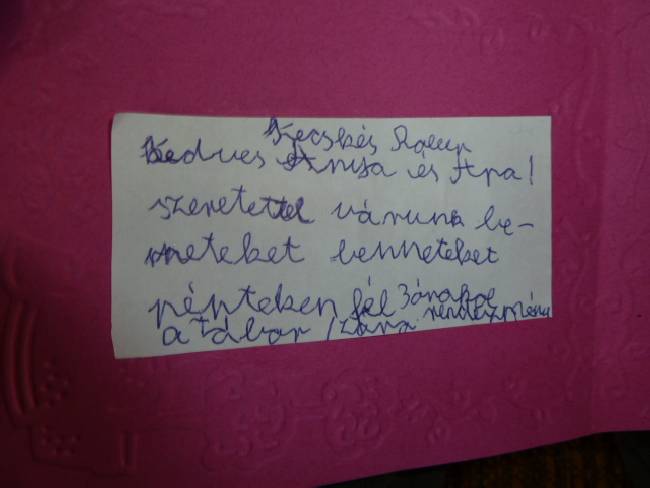 Kecskés
Kedves Anya és Apa!
szeretettel várunk be-
nneteket benneteket
pénteken fél 3órakor
a tábor záró